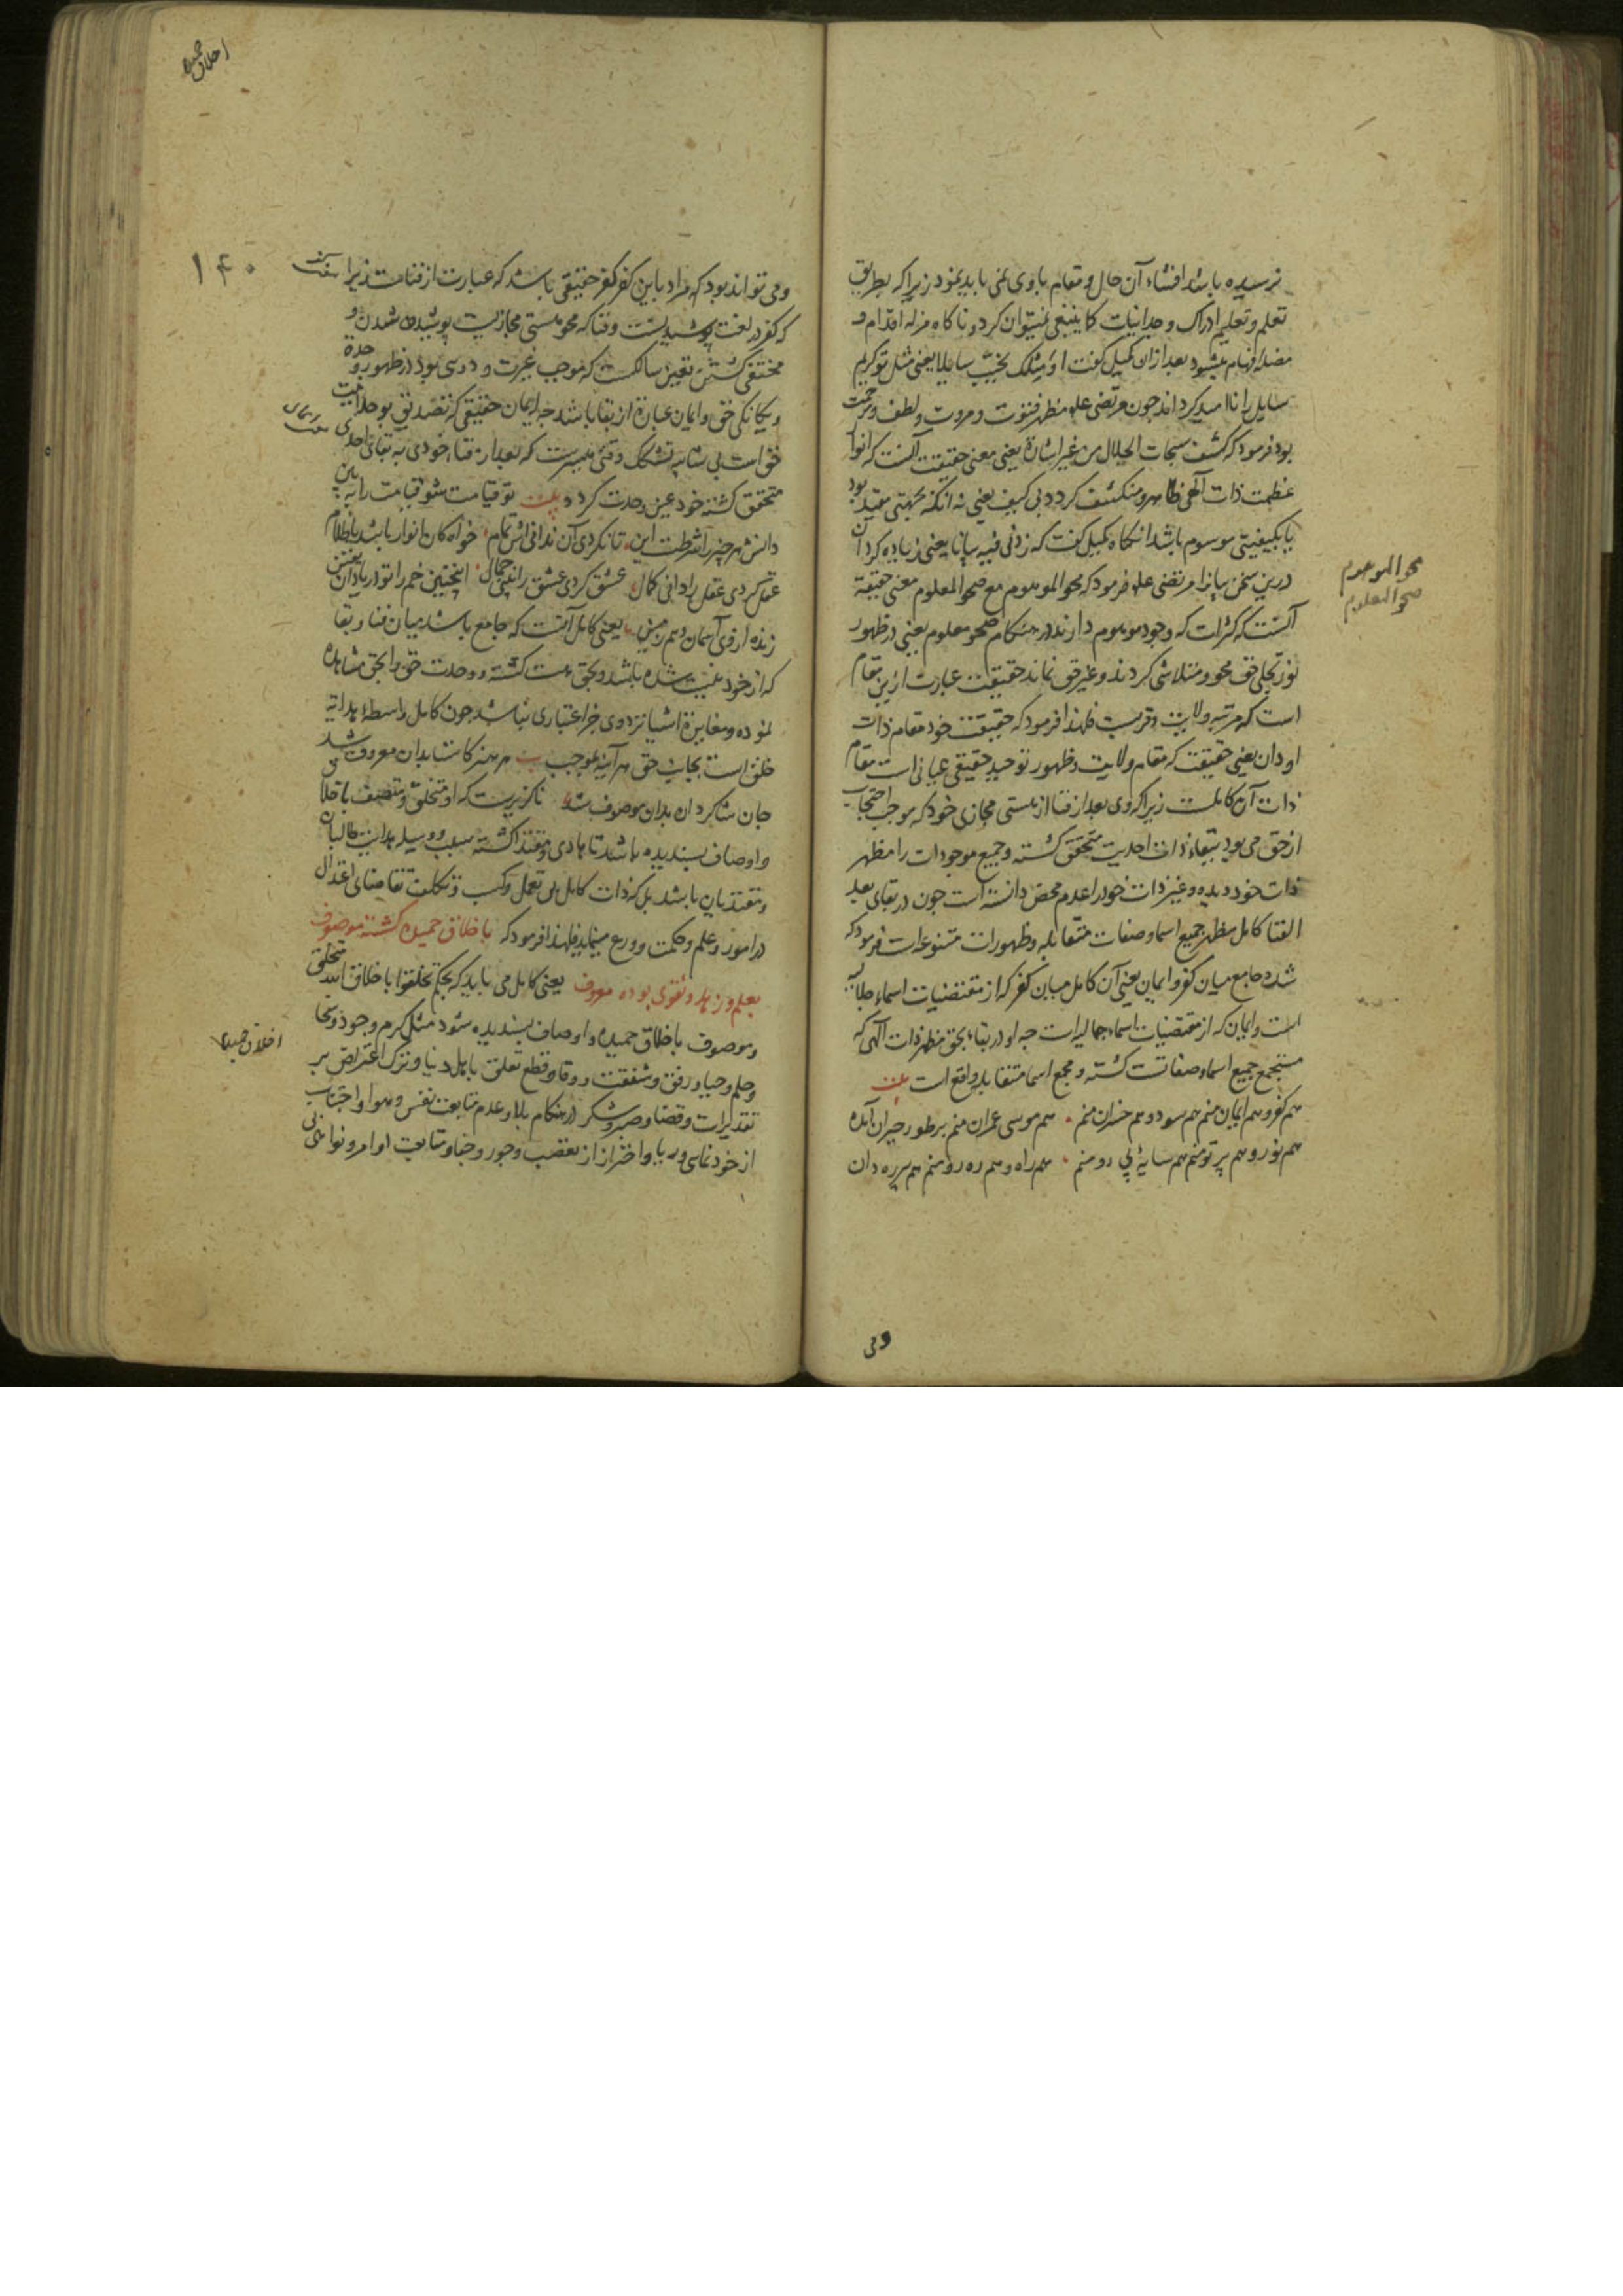 نرسیده باشد افشاء آن حال و مقام باوی نمی باید نمود زیرا که بطریق
تعلم و تعلیم ادراک وجدانیات کما ینبغی نمیتوان کرد و ناکاه مزله اقدام و
مضله افهام میشود بعد ازان کمیل کفت او مثلک یخیب سایلا یعنی مثل تو کریم
سایل را ناامید کرداند چون مرتضی علی مظهر فتوت و مروت و لطف و مرحمت
بود فرمود که کشف سبحات الجلال من غیر اشارة یعنی معنی حقیقت آنست که انوار
عظمت ذات الهی ظاهر و منکشف کردد بی کیف یعنی نه انکه بجهتی مقید بود
یا بکیفیتی موسوم باشد انکاه کمیل کفت که زدنی فیه بیانا یعنی زیاده کردان
درین سخن بیانرا مرتضی علی فرمود که محو الموهوم مع صحو المعلوم معنی حقیقة
آنست که کثرات که وجود موهوم دارند در هنکام صحو معلوم یعنی در ظهور
نور تجلی حق محو و متلاشی کردند و غیر حق نماند حقیقت عبارت ازین مقام
است که مرتبه ولایت و قربست فلهذا فرمود که حقیقت خود مقام ذات
او دان یعنی حقیقت که مقام ولایت و ظهور توحید حقیقی عیانی است مقام
ذات آن کاملست زیرا که وی بعد از فنا از هستی مجازی خود که موجب احتجاب
از حق می بود ببقاء ذات احدیت متحقق کشته و جمیع موجودات را مظهر
ذات خود دیده و غیر ذات خود را عدم محض دانسته است چون در بقای بعد
الفنا کامل مظهر جمیع اسما و صفات متقابله و ظهورات متنوعه است فرمود که
شده جامع میان کفر و ایمان یعنی آن کامل میان کفر که از مقتضیات اسماء جلالیه
است و ایمان که از مقتضیات اسماء جمالیه است چه او در بقاء بحق مظهر ذات الهی که
مستجمع جمیع اسما و صفاتست کشته و مجمع اسما متقابله واقع است بیت
هم کفر و هم ایمان منم هم سود و هم خسران منم هم موسی عمران منم بر طور حیران آمده
هم نور و هم پرتو منم هم سایهٔ پی رو منم هم راه و هم ره رو منم هم پیر ره دان
محو الموهوم
صحو المعلوم
ومی
اخلاق حمیده
۱۴۰
ومی تواند بود که مراد باین کفر کفر حقیقی باشد که عبارت از فناست زیرا
که کفر در لغت پوشیدنست و فنا که محو هستی مجازیست پوشیده شدن و
مختفی کشتن تعین سالکست که موجب غیرت و دوی بود در ظهور وحدة
و یکانکی حق و ایمان عبارة از بقا باشد چه ایمان حقیقی که تصدیق بوحدانیت
حق است بی شایبه تشکک وقتی میسرست که بعد از فناء خودی به بقای احدی
متحقق کشته خود عین وحدت کردد بیت تو قیامت شو قیامت را ببین
دانش هر چیز را شرطست این تا نکردی آن ندانی اش تمام خواه کان انوار باشد یا ظلام
عقل کردی عقل را دانی کمال عشق کردی عشق را بینی جمال
زنده از وی آسمان و هم زمین یعنی کامل آنست که جامع باشد میان فنا و بقا
که از خود نیست شده باشد و بحق هست کشته و وحدت حق را بحق مشاهده
نموده و مغایرة اشیا نزد وی جز اعتباری نباشد چون کامل واسطهٔ هدایة
خلق است بجانب حق هر آینه بموجب بیت هر هنر کاستا بدان معروف شد
جان شاکردان بدان موصوف شد ناکزیرست که او متخلق و متصف باخلاق
و اوصاف پسندیده باشد تا هادی و مقتدا کشته سبب و وسیله هدایت طالبان
و مقتدیان باشد بل که ذات کامل بی تعمل و کسب و تکلف تقاضای اعتدال
در امور و علم و حکمت و ورع مینماید فلهذا فرمود که باخلاق حمیده کشته موصوف
بعلم و زهد و تقوی بوده معروف یعنی کامل می باید که بحکم تخلقوا باخلاق الله متخلق
و موصوف باخلاق حمیده و اوصاف پسندیده شود مثل کرم و جود و سخا
و حلم و حیا و رفق و شفقت و وقار و قطع تعلق باهل دنیا و ترک اعتراض بر
تقدیرات و قضا و صبر و شکر در هنکام بلا و عدم متابعت نفس و هوا و اجتناب
از خودنمایی و ریا و احتراز از تعصب و جور و جفا و متابعت اوامر و نواهی
اخلاق حمیده